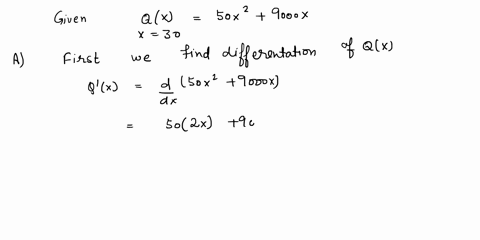 Given Q(x) = 50x² + 9000x
x = 30
A) First we find differentation of Q(x)
Q'(x) = d/dx (50x² + 9000x)
= 50(2x) + 90